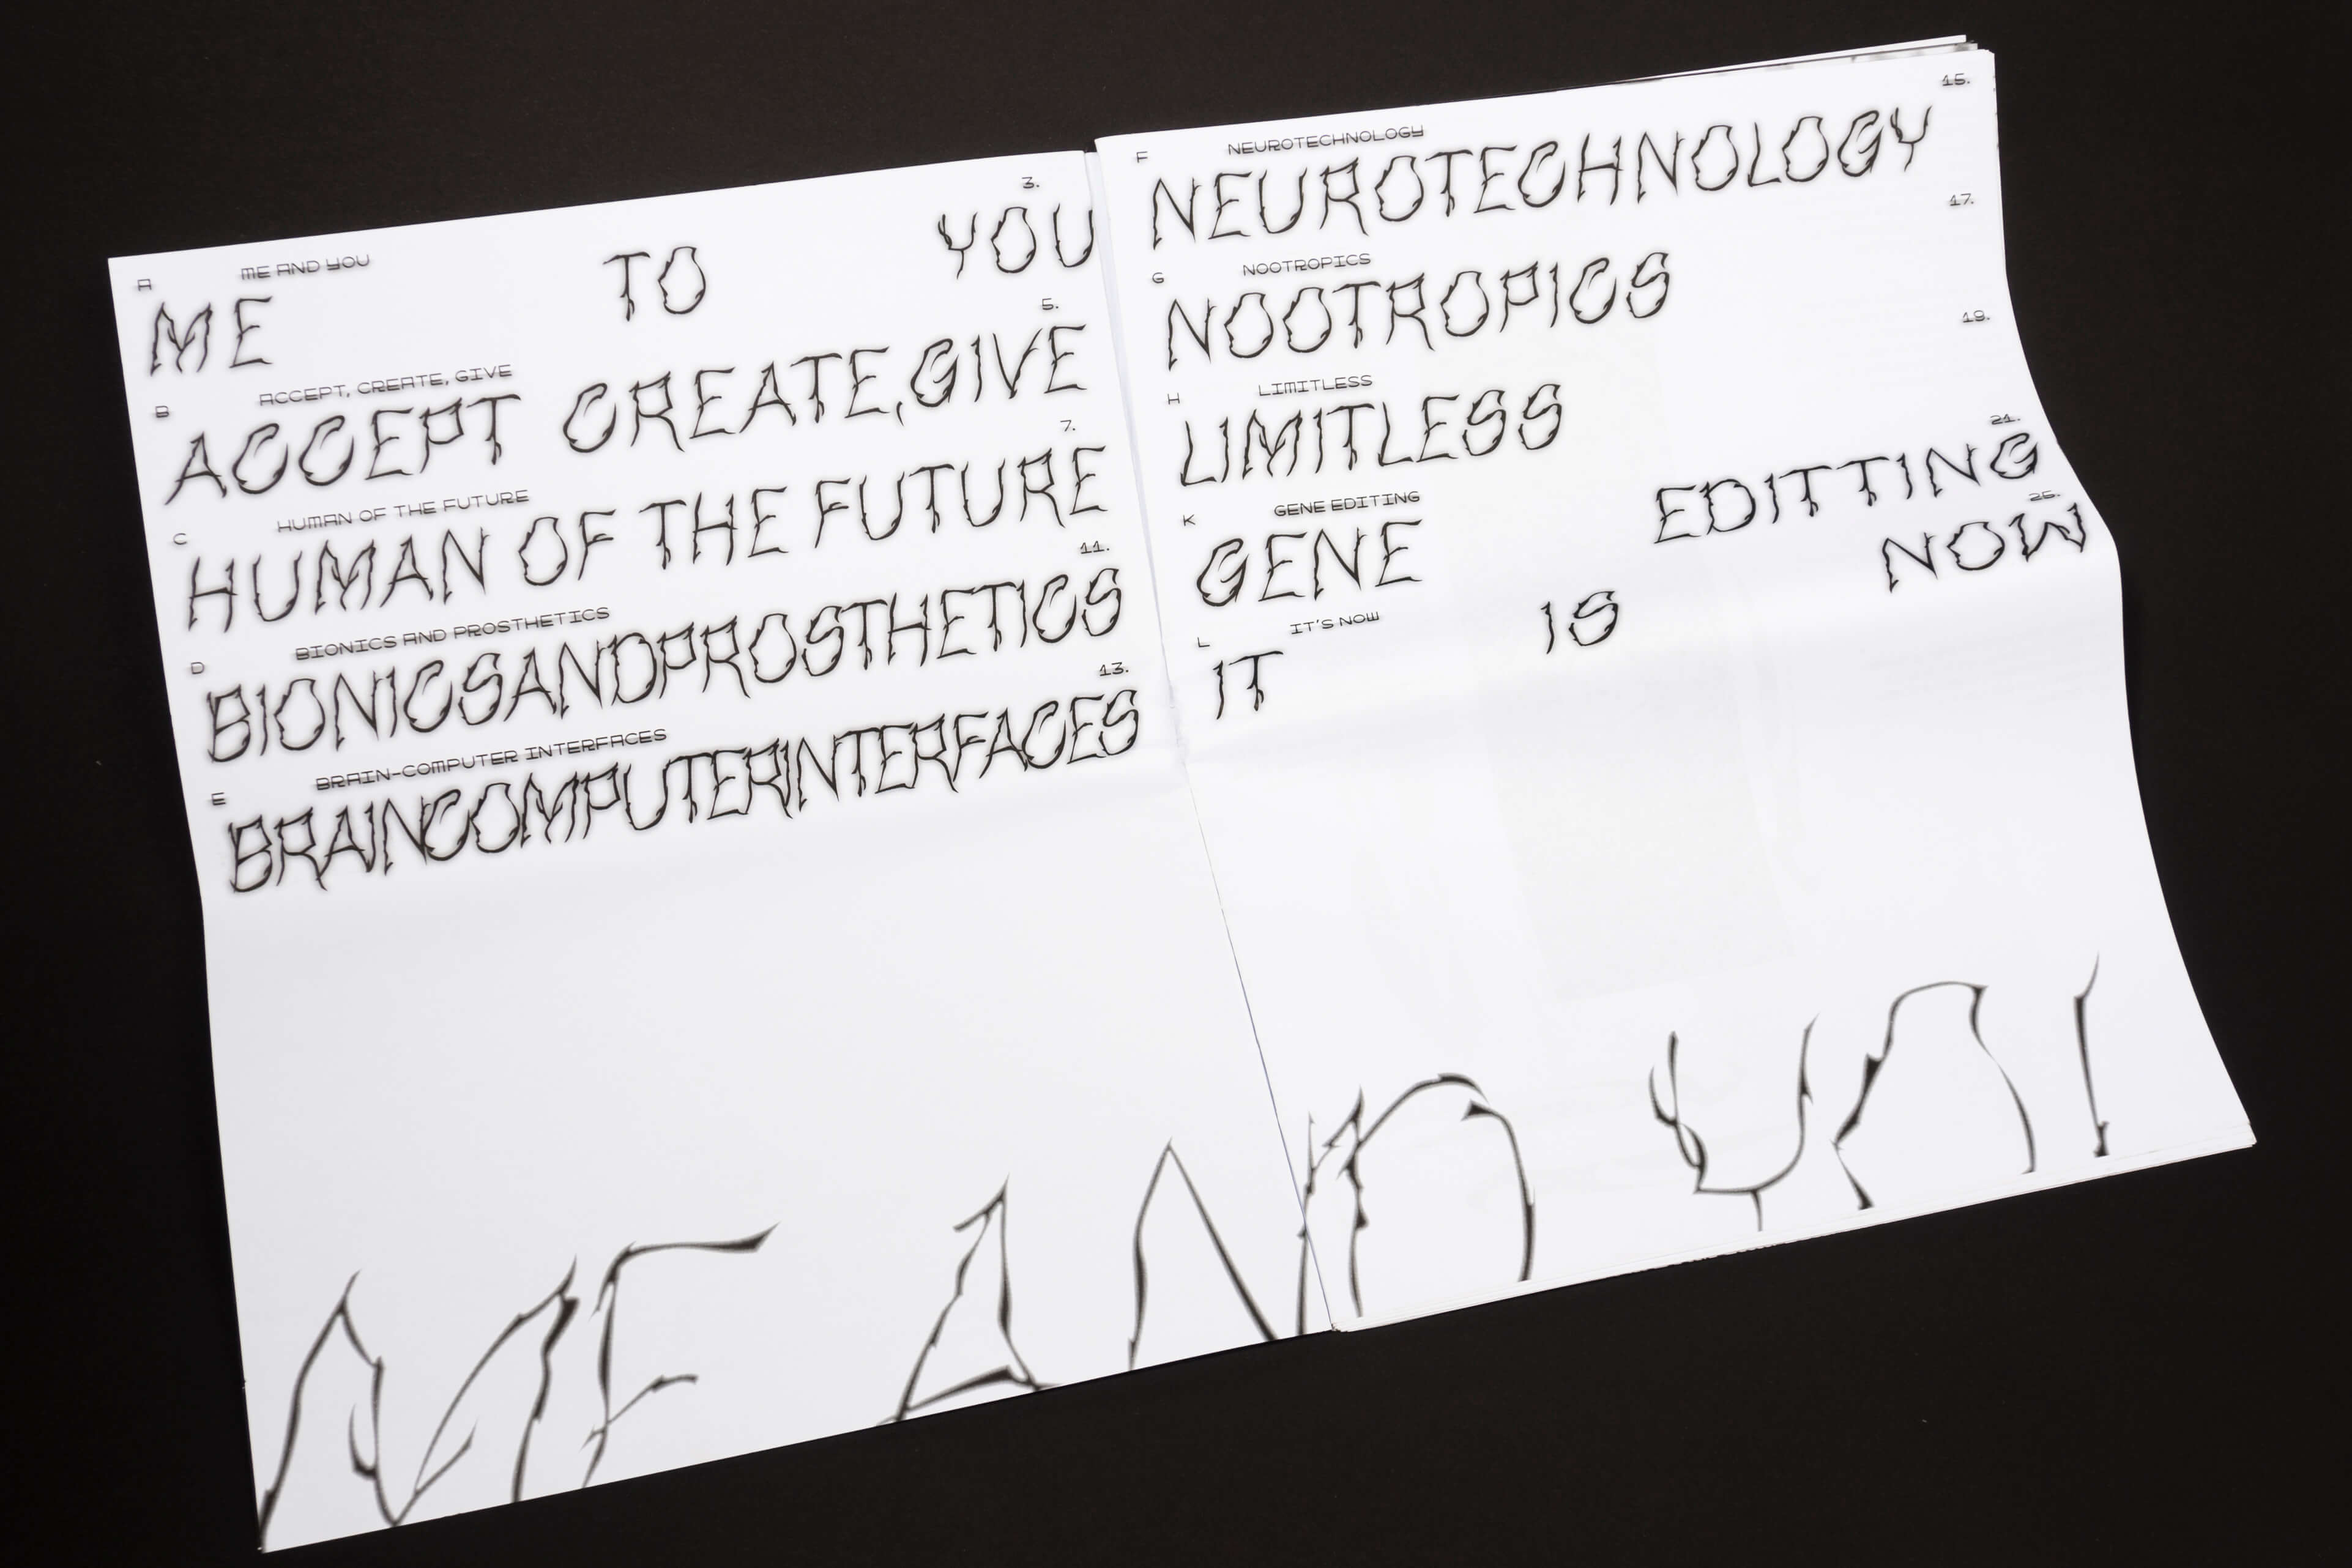 3.
A ME AND YOU
ME TO YOU
5.
B ACCEPT, CREATE, GIVE
ACCEPT CREATE,GIVE
7.
C HUMAN OF THE FUTURE
HUMAN OF THE FUTURE
11.
D BIONICS AND PROSTHETICS
BIONICSANDPROSTHETICS
13.
E BRAIN-COMPUTER INTERFACES
BRAINCOMPUTERINTERFACES
15.
F NEUROTECHNOLOGY
NEUROTECHNOLOGY
17.
G NOOTROPICS
NOOTROPICS
19.
H LIMITLESS
LIMITLESS
21.
K GENE EDITING
GENE EDITTING
25.
L IT'S NOW
IT IS NOW
ME AND